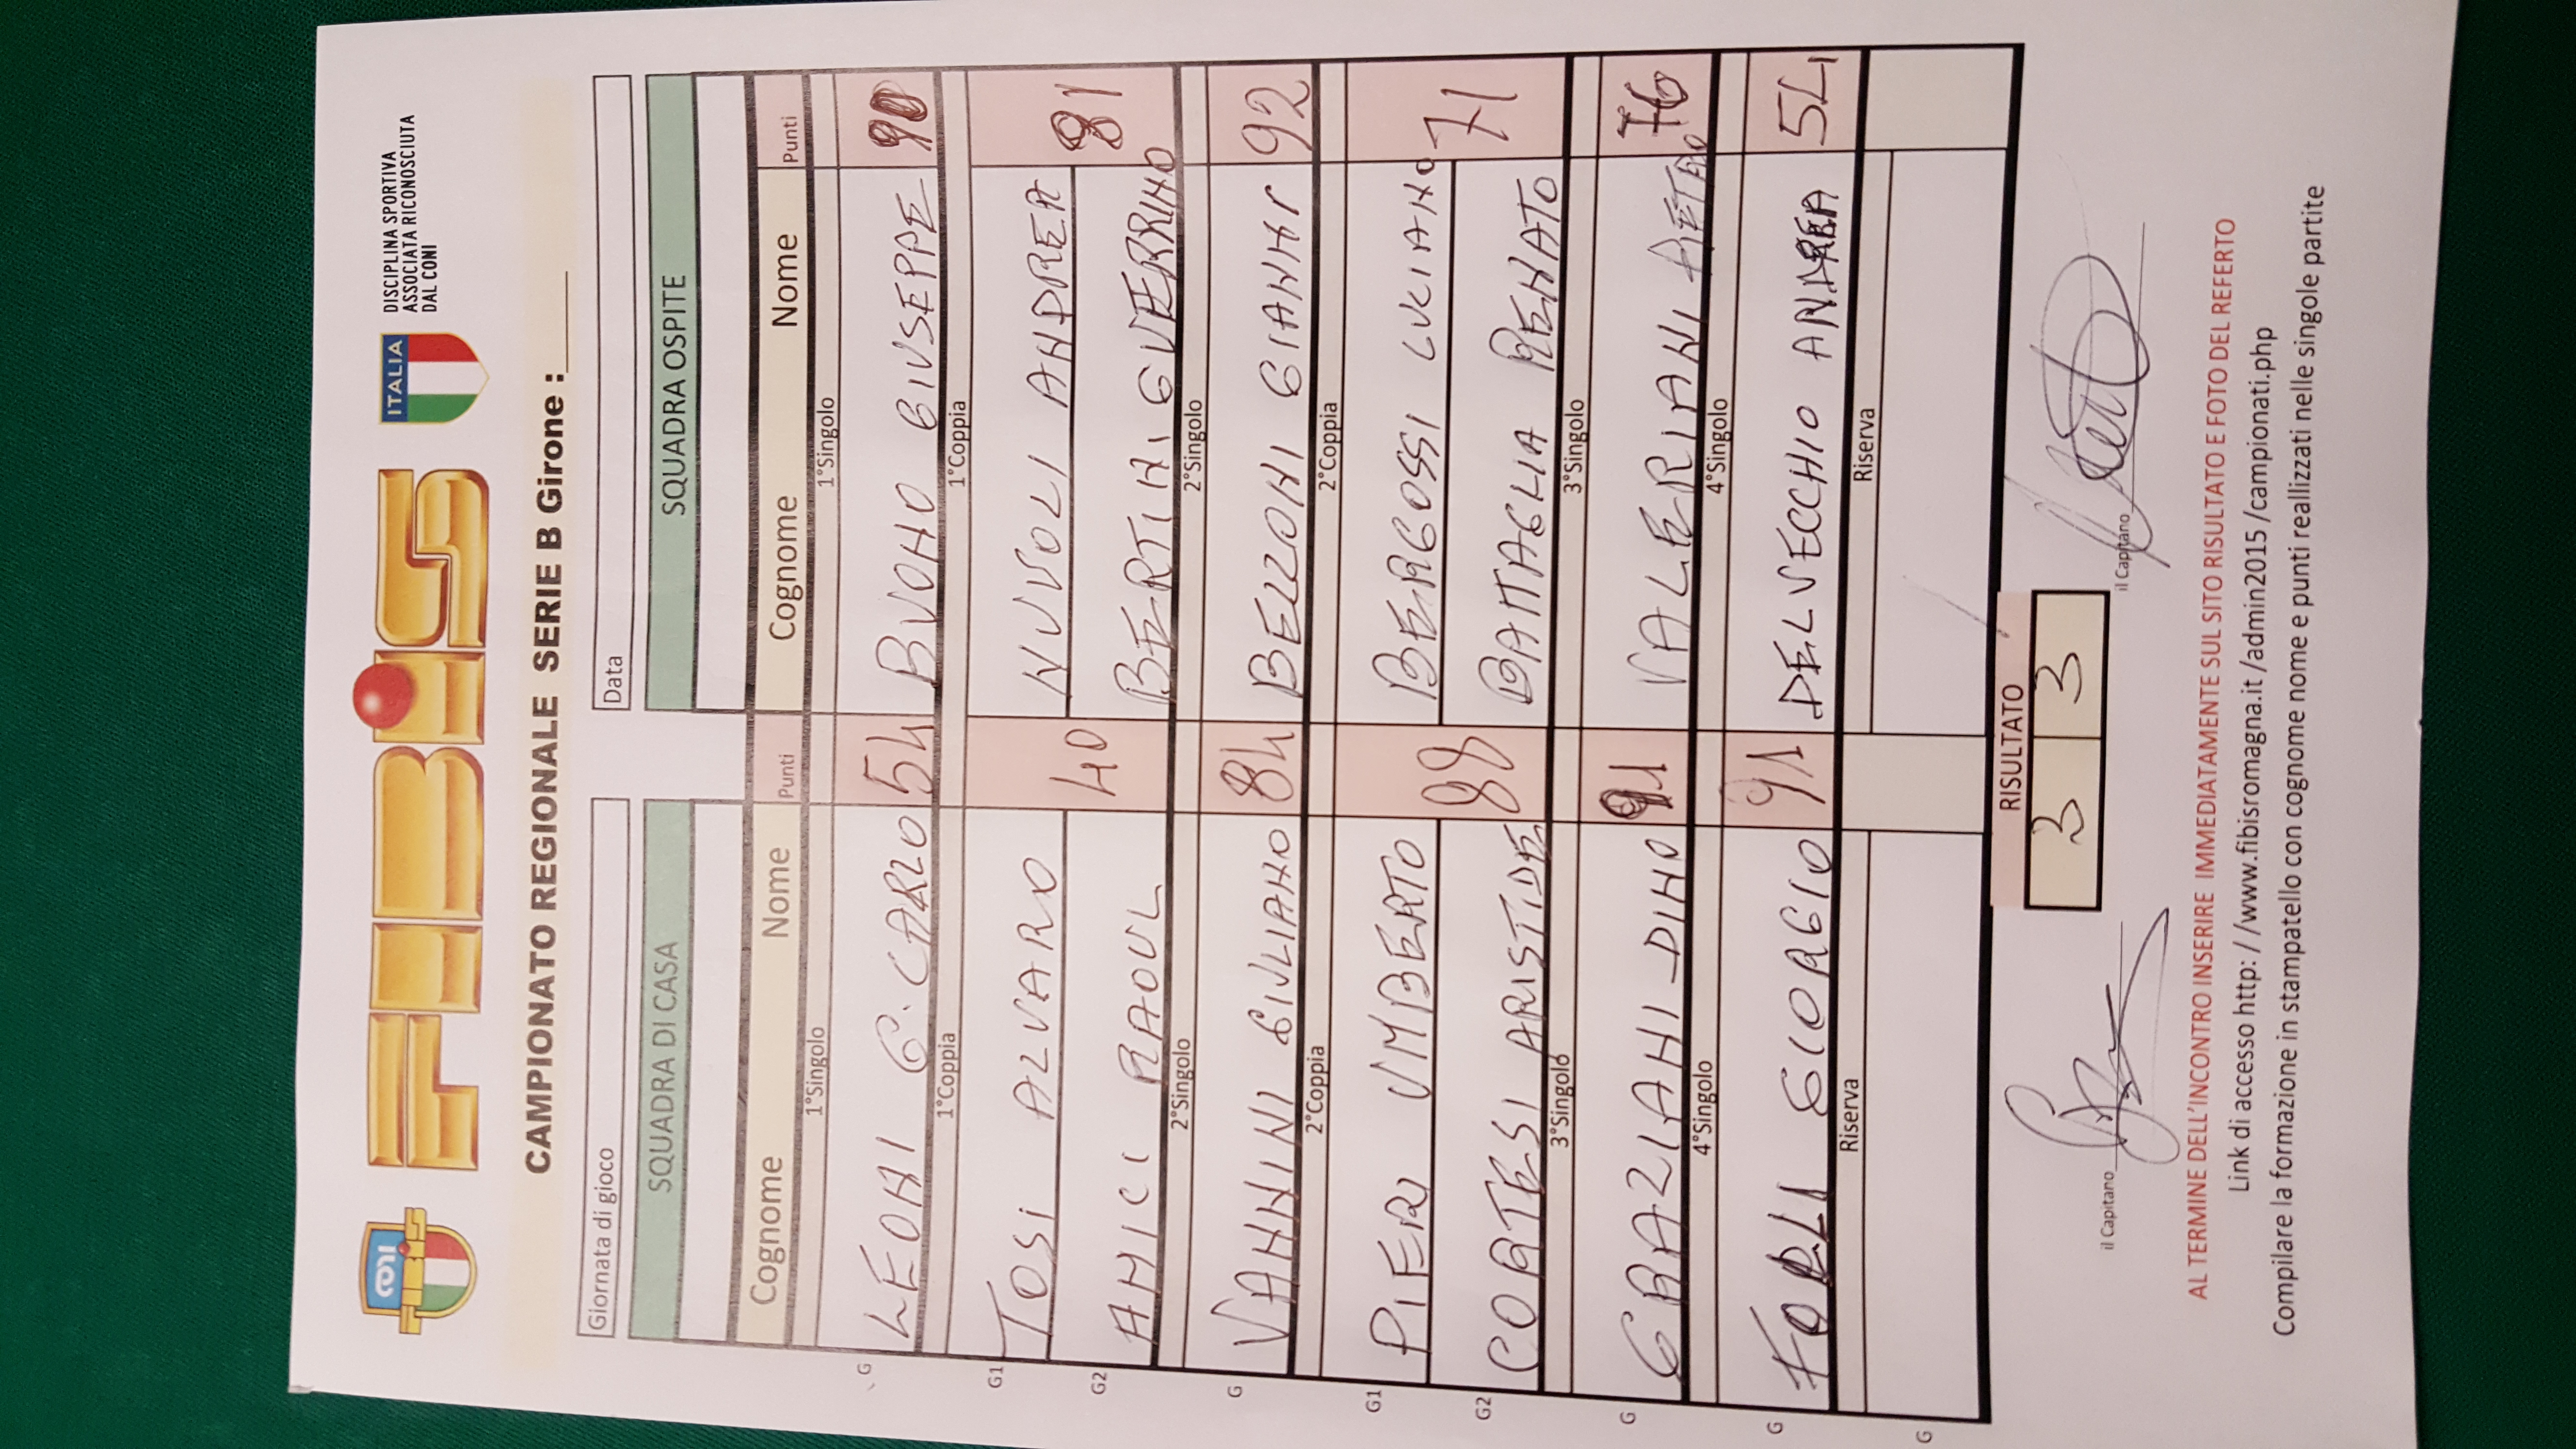 FIBiS
ITALIA
DISCIPLINA SPORTIVA
ASSOCIATA RICONOSCIUTA
DAL CONI
CAMPIONATO REGIONALE SERIE B Girone :______
Giornata di gioco Data
SQUADRA DI CASA SQUADRA OSPITE
Cognome Nome Punti Cognome Nome Punti
1°Singolo 1°Singolo
G LEONI G. CARLO 54 BUONO GIUSEPPE
1°Coppia 1°Coppia
G1 TOSI ALVARO NUVOLI ANDREA
40 81
G2 AMICI RAOUL BERTINI GUERRINO
2°Singolo 2°Singolo
G VANNINI GIULIANO 84 BELZONI GIANNI 92
2°Coppia 2°Coppia
G1 PIERI UMBERTO BERGOSSI LUCIANO
88 71
G2 CORTESI ARISTIDE BATTAGLIA RENATO
3°Singolo 3°Singolo
G GRAZIANI DINO 91 VALERIANI 76
4°Singolo 4°Singolo
G FORLI GIORGIO 91 DELVECCHIO ANDREA 54
Riserva Riserva
G
RISULTATO
3 3
il Capitano il Capitano
AL TERMINE DELL'INCONTRO INSERIRE IMMEDIATAMENTE SUL SITO RISULTATO E FOTO DEL REFERTO
Link di accesso http: / /www.fibisromagna.it /admin2015 /campionati.php
Compilare la formazione in stampatello con cognome nome e punti reallizzati nelle singole partite